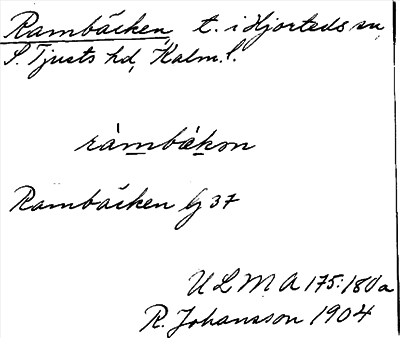 Rambäcken, t. i Hjorteds sn
S. Tjusts hd, Kalm. l.
ràmbäkon
Rambäcken bj 37
ULMA 175:180a
R. Johansson 1904